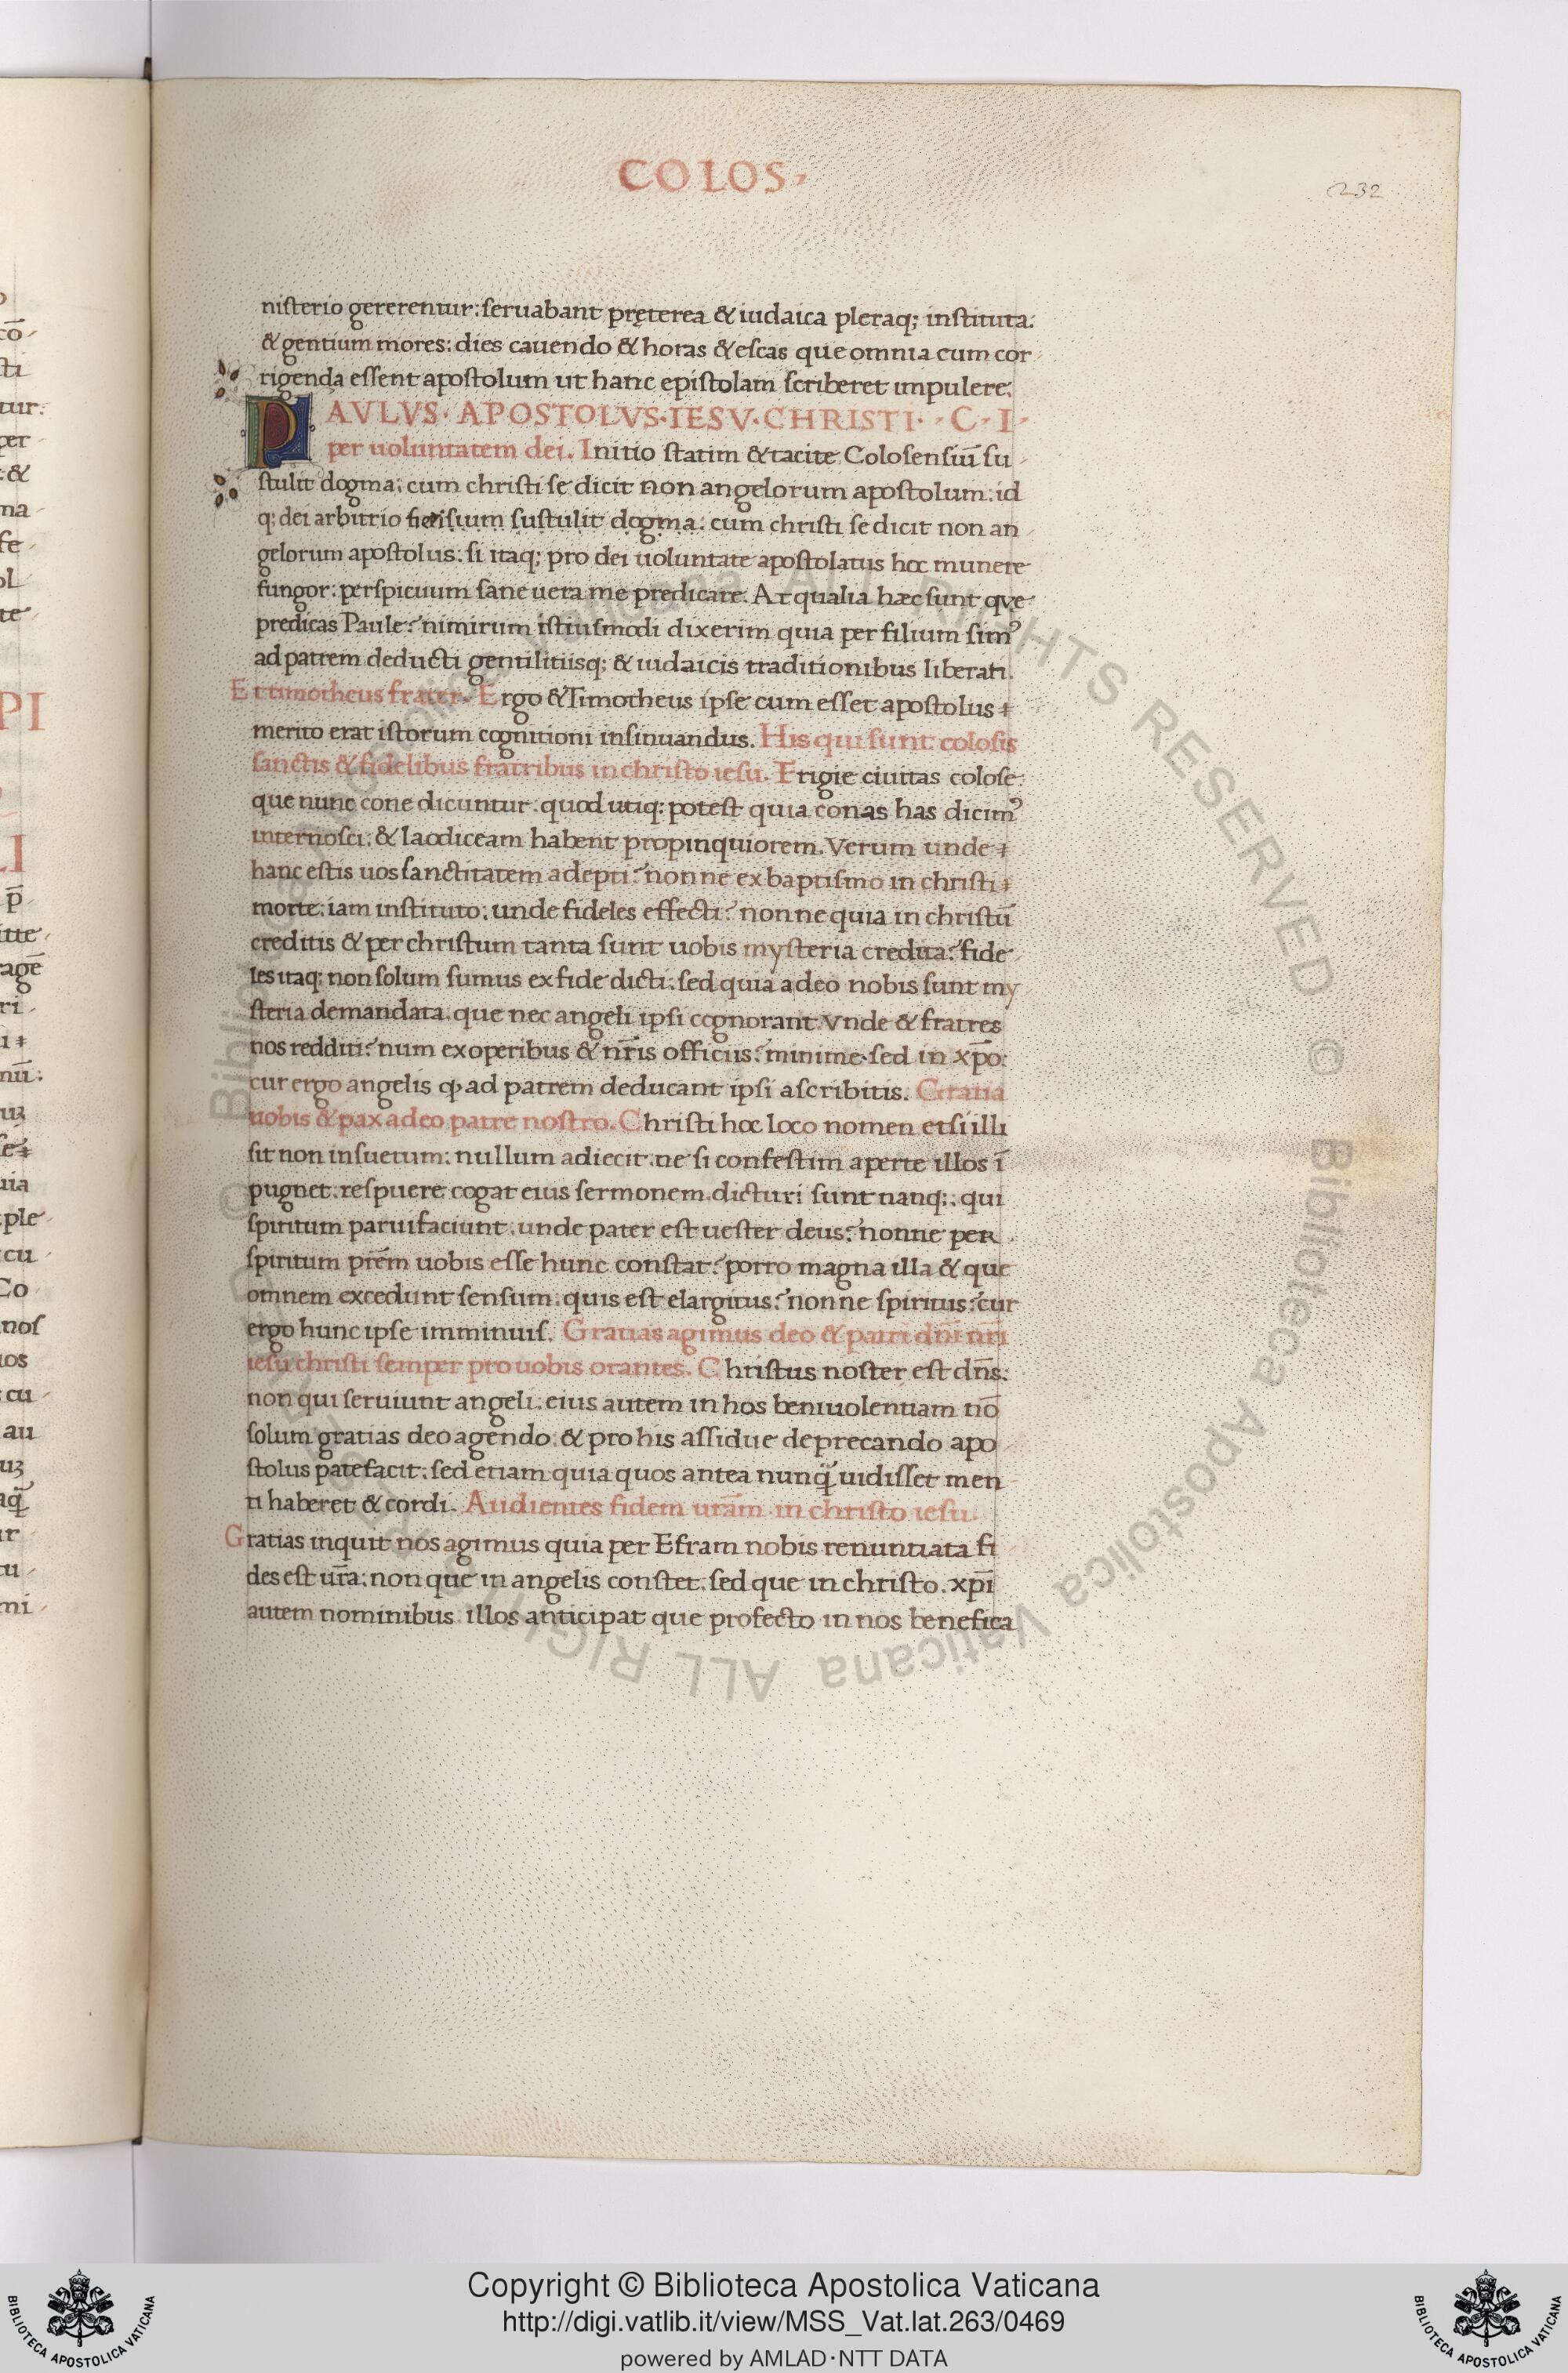 COLOS·
232
nisterio gererentur: seruabant pręterea & iudaica pleraq; instituta:
& gentium mores: dies cauendo & horas & escas que omnia cum cor
rigenda essent apostolum ut hanc epistolam scriberet impulere.
PAVLVS· APOSTOLVS·IESV·CHRISTI· C· I·
per uoluntatem dei. Initio statim & tacite Colosensiũ su
stulit dogma: cum christi se dicit non angelorum apostolum: id
q; dei arbitrio fieri sium sustulit dogma: cum christi se dicit non an
gelorum apostolus: si itaq; pro dei uoluntate apostolatus hoc munere
fungor: perspicuum sane uera me predicare. At qualia hæc sunt que
predicas Paule? nimirum istiusmodi dixerim quia per filium simꝰ
ad patrem deducti gentilitiisq; & iudaicis traditionibus liberati.
Et timotheus frater. Ergo & Timotheus ipse cum esset apostolus
merito erat istorum cognitioni insinuandus. His qui sunt colosis
sanctis & fidelibus fratribus in christo iesu. Frigie ciuitas colose:
que nunc cone dicuntur: quod utiq; potest quia conas has dicimꝰ
internosci: & laodiceam habent propinquiorem. Verum unde
hanc estis uos sanctitatem adepti? nonne ex baptismo in christi
morte: iam instituto: unde fideles effecti? nonne quia in christũ
creditis & per christum tanta sunt uobis mysteria credita? fide
les itaq; non solum sumus ex fide dicti: sed quia a deo nobis sunt my
steria demandata: que nec angeli ipsi cognorant. Vnde & fratres
nos redditi? num ex operibus & nr̃is officiis? minime sed in xp̃o:
cur ergo angelis ꝙ ad patrem deducant ipsi ascribitis. Gratia
uobis & pax a deo patre nostro. Christi hoc loco nomen etsi illi
sit non insuetum: nullum adiecit: ne si confestim aperte illos ĩ
pugnet: respuere cogat eius sermonem dicturi sunt nanq; qui
spiritum paruifaciunt: unde pater est uester deus? nonne per
spiritum pr̃em uobis esse hunc constat? porro magna illa & que
omnem excedunt sensum: quis est elargitus? nonne spiritus? cur
ergo hunc ipse imminuis. Gratias agimus deo & patri dñi nr̃i
iesu christi semper pro uobis orantes. Christus noster est dñs:
non qui seruiunt angeli: eius autem in hos beniuolentiam nõ
solum gratias deo agendo & pro his assidue deprecando apo
stolus patefacit: sed etiam quia quos antea nunq̃ uidisset men
ti haberet & cordi. Audientes fidem ur̃am in christo iesu.
Gratias inquit nos agimus quia per Efram nobis renuntiata fi
des est ur̃a: non que in angelis constet: sed que in christo. xp̃i
autem nominibus illos anticipat que profecto in nos benefica
Copyright © Biblioteca Apostolica Vaticana
http://digi.vatlib.it/view/MSS_Vat.lat.263/0469
powered by AMLAD·NTT DATA
BIBLIOTECA APOSTOLICA VATICANA
BIBLIOTECA APOSTOLICA VATICANA